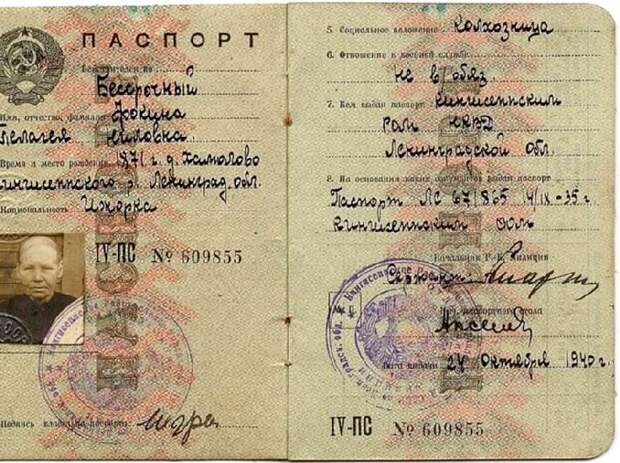 ПАСПОРТ
Действителен по
Бессрочный
Фокина
Имя, отчество, фамилия
Пелагея Ниловка
Время и место рождения 1871 г. д. Хамолово
Кингисеппского р. Ленинград. обл.
Национальность
Ижорка
IV-ПС № 609855
Подпись владельца паспорта
5. Социальное положение Колхозница
6. Отношение к военной службе
не в/обяз.
7. Кем выдан паспорт Кингисеппским
НКВД
Ленинградской Обл.
8. На основании каких документов выдан паспорт
Паспорт ЛС 671865 4/IX-35 г
Кингисеппским
Начальник Р.-К. Милиции
Сержант
паспортного стола
24 Октября 1940 г.
IV-ПС № 609855